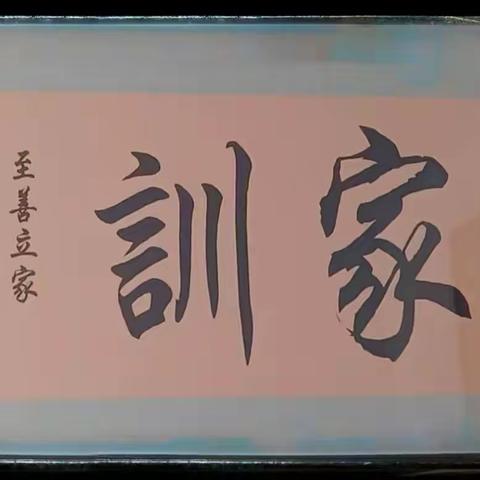 家訓
至善立家